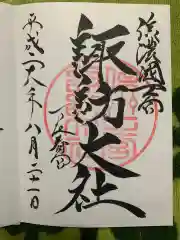 信濃國一宮
諏訪大社
下社秋宮
平成二十八年八月二十一日